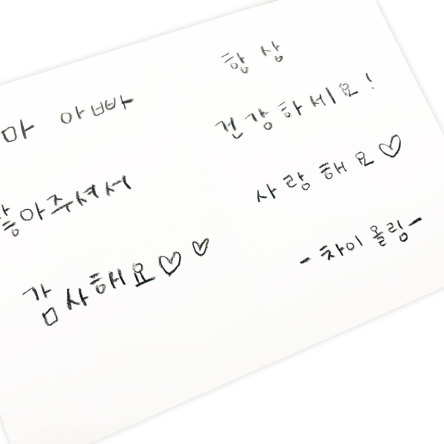 마 아빠
낳아주셔서
감사해요♡♡
항상
건강하세요!
사랑해요♡
-차이 올림-